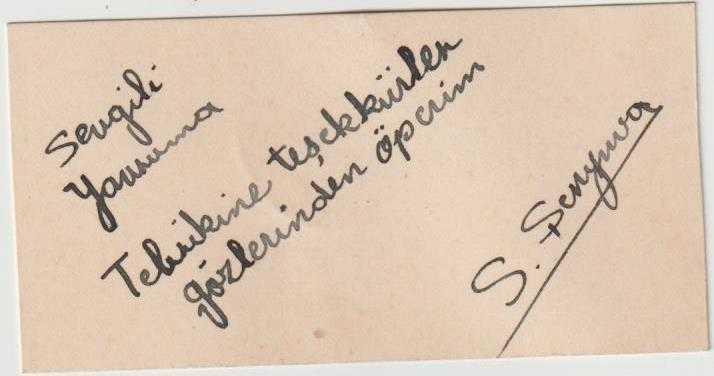 Sevgili
Yavruma
Tebrikine teşekkürler
gözlerinden öperim
S. Şenyuva